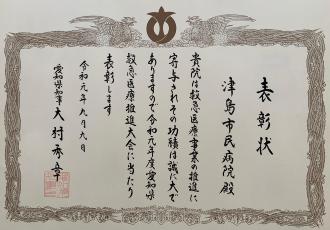 表彰状
津島市民病院殿
貴院は救急医療事業の推進に
寄与されその功績は誠に大で
ありますので令和元年度愛知県
救急医療推進大会に当たり
表彰します
令和元年九月九日
愛知県知事 大村秀章